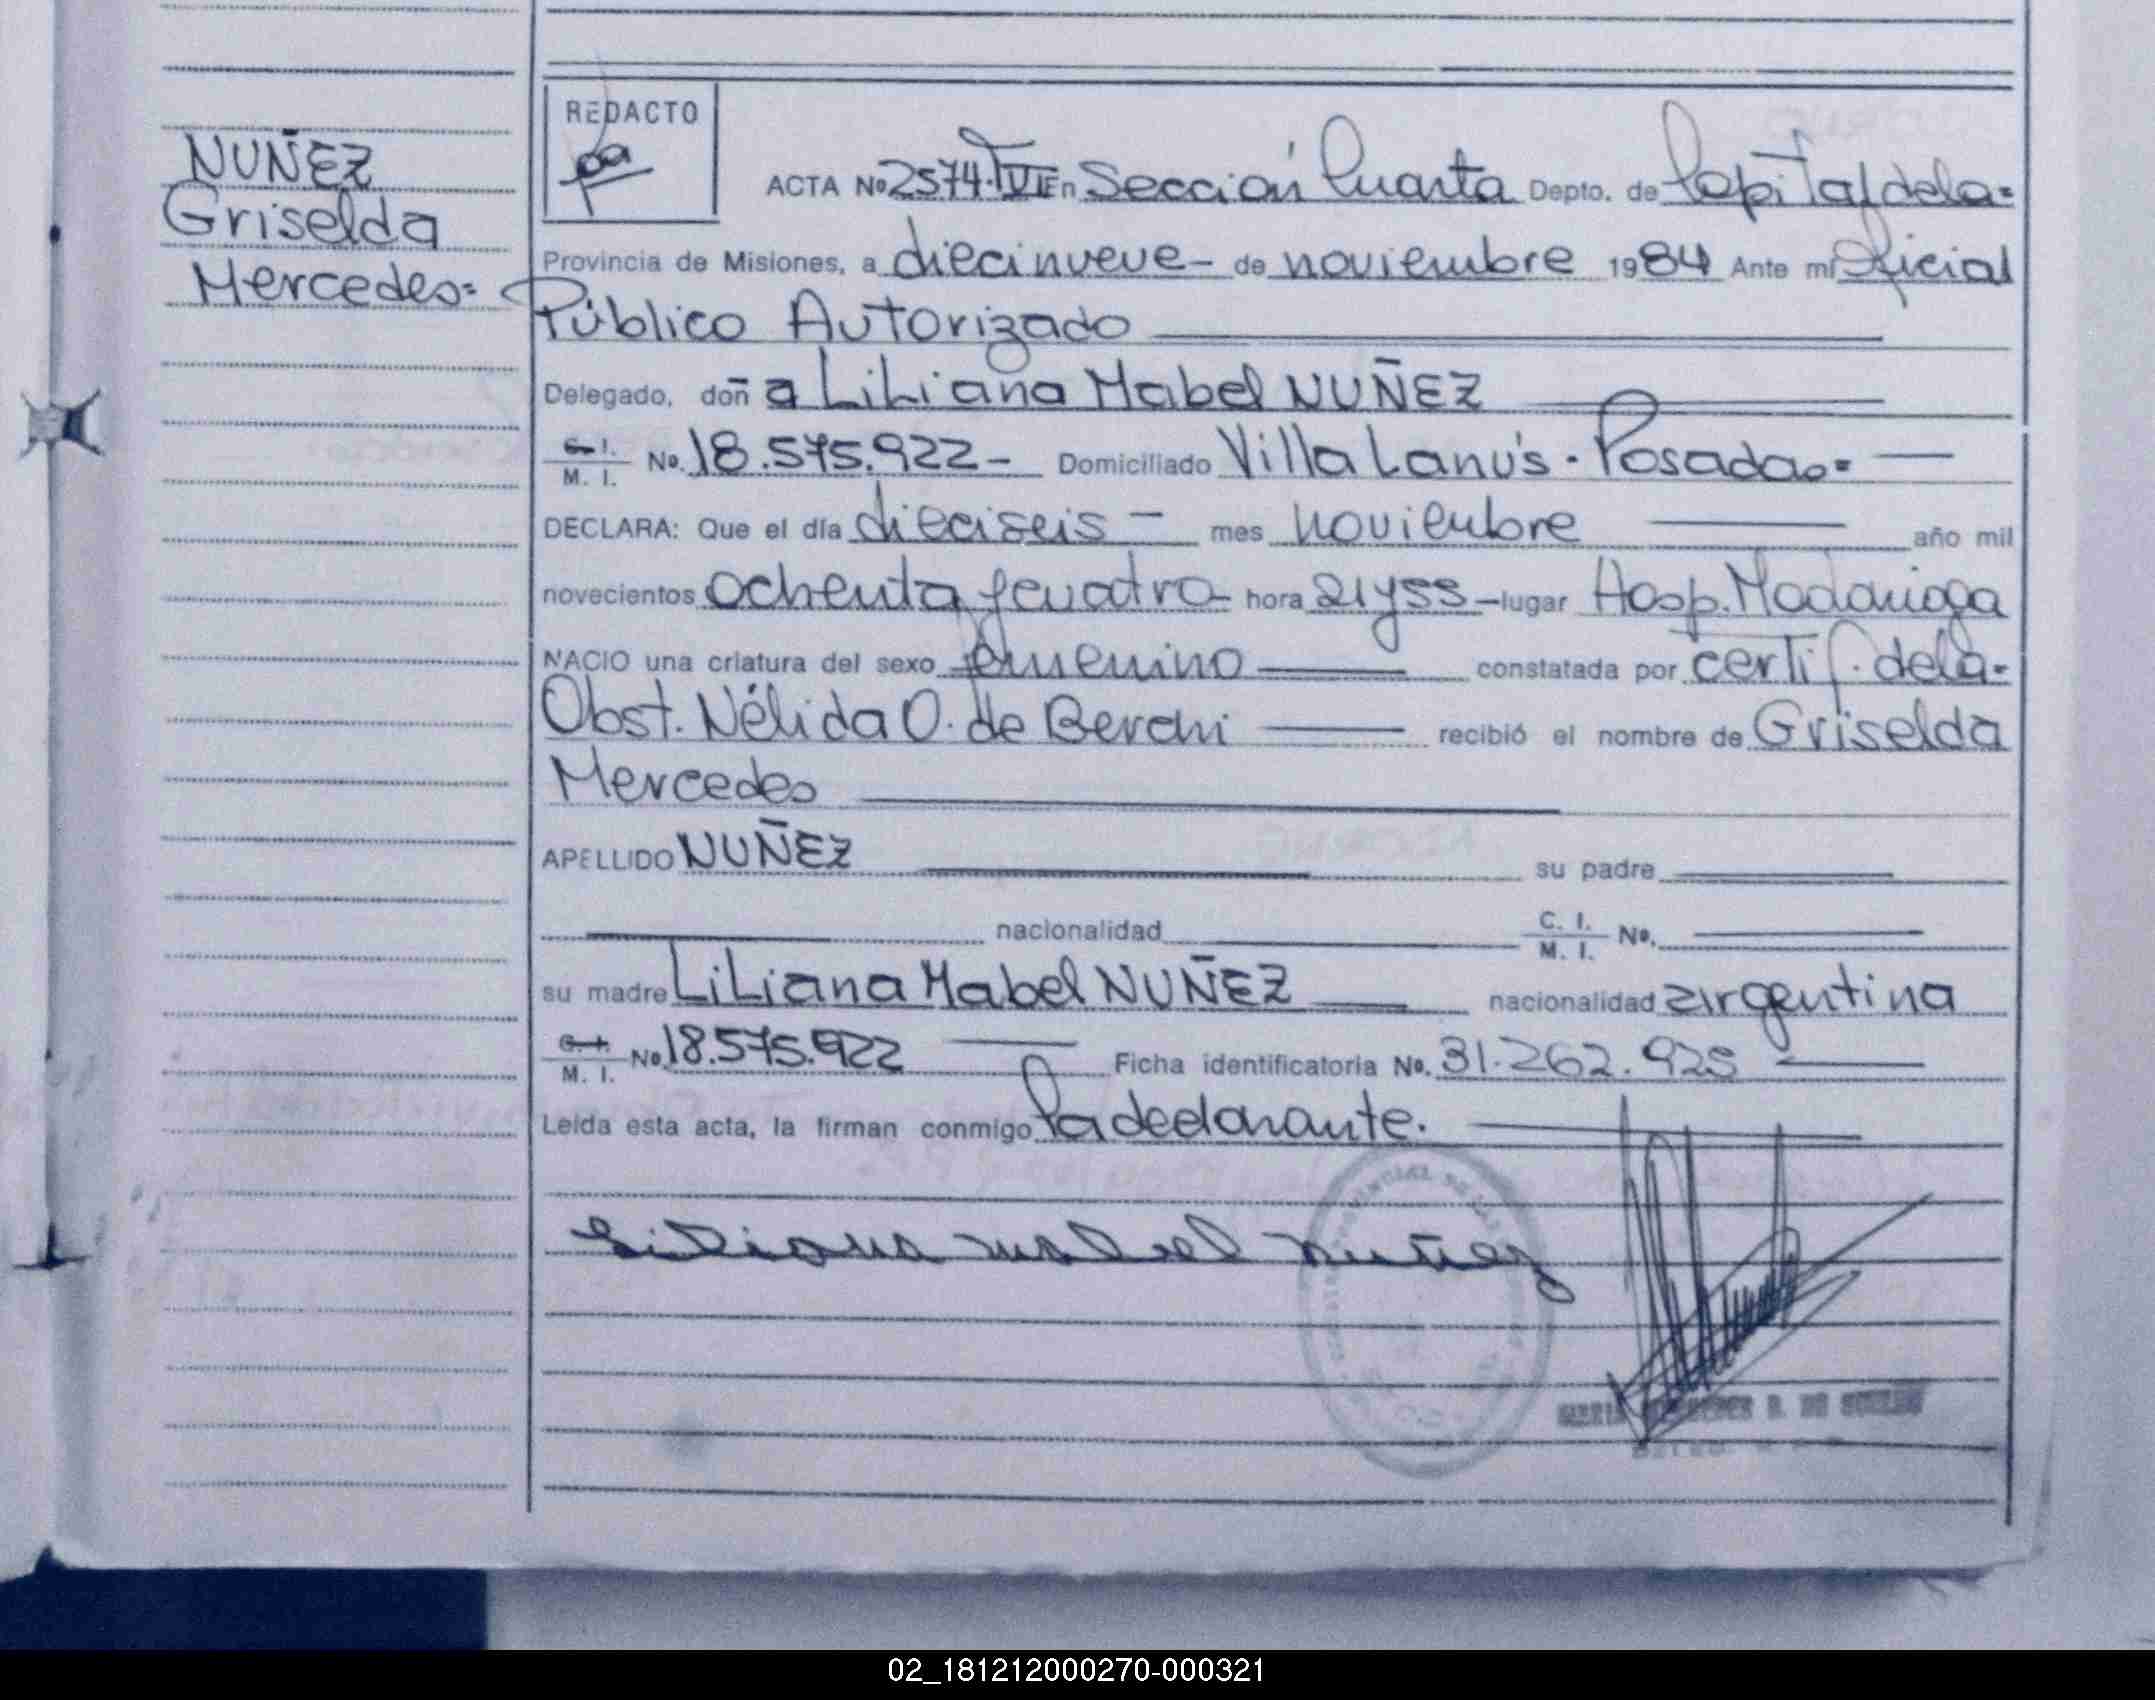 NUÑEZ
Griselda
Mercedes=
REDACTO
ACTA Nº 2574·TVII En Sección Cuarta Depto. de Capital de la=
Provincia de Misiones, a diecinueve - de noviembre 1984 Ante mí Oficial
Público Autorizado
Delegado, doña Liliana Mabel NUÑEZ
C. I.
M. I. Nº. 18.575.922 - Domiciliado Villa Lanús - Posadas=
DECLARA: Que el día dieciseis - mes noviembre año mil
novecientos ochenta y cuatro - hora 21 y 55 - lugar Hosp. Madariaga
NACIO una criatura del sexo femenino constatada por certif. de la-
Obst. Nélida O. de Berchi recibió el nombre de Griselda
Mercedes
APELLIDO NUÑEZ su padre
nacionalidad C. I.
M. I. Nº.
su madre Liliana Mabel NUÑEZ nacionalidad argentina
C. I.
M. I. Nº. 18.575.922 Ficha identificatoria Nº. 31.262.925 -
Leída esta acta, la firman conmigo la declarante.
Liliana mabel nuñez
MARIA DE
02_181212000270-000321